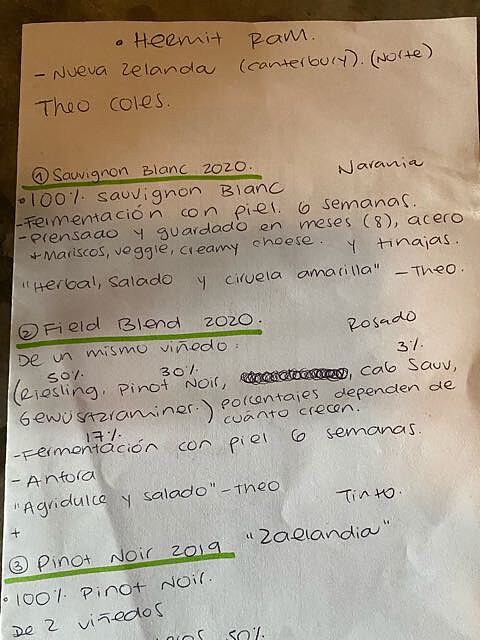 • Hermit Ram.
- Nueva Zelanda (Canterbury). (Norte)
Theo Coles.
① Sauvignon Blanc 2020. Naranja
• 100% Sauvignon Blanc
- Fermentación con piel. 6 semanas.
- prensado y guardado en meses (8), acero y tinajas.
+ Mariscos, veggie, creamy cheese.
"Herbal, Salado y ciruela amarilla" - Theo.
② Field Blend 2020. Rosado
De un mismo viñedo:
50% 30% 3%
(Riesling, Pinot Noir, cab Sauv,
Gewüstzraminer.) porcentajes dependen de cuánto crecen.
17%
- Fermentación con piel 6 semanas.
- Anfora
"Agridulce y salado" - Theo
+
③ Pinot Noir 2019 "Zaelandia" Tinto.
• 100% Pinot Noir.
De 2 viñedos
50%